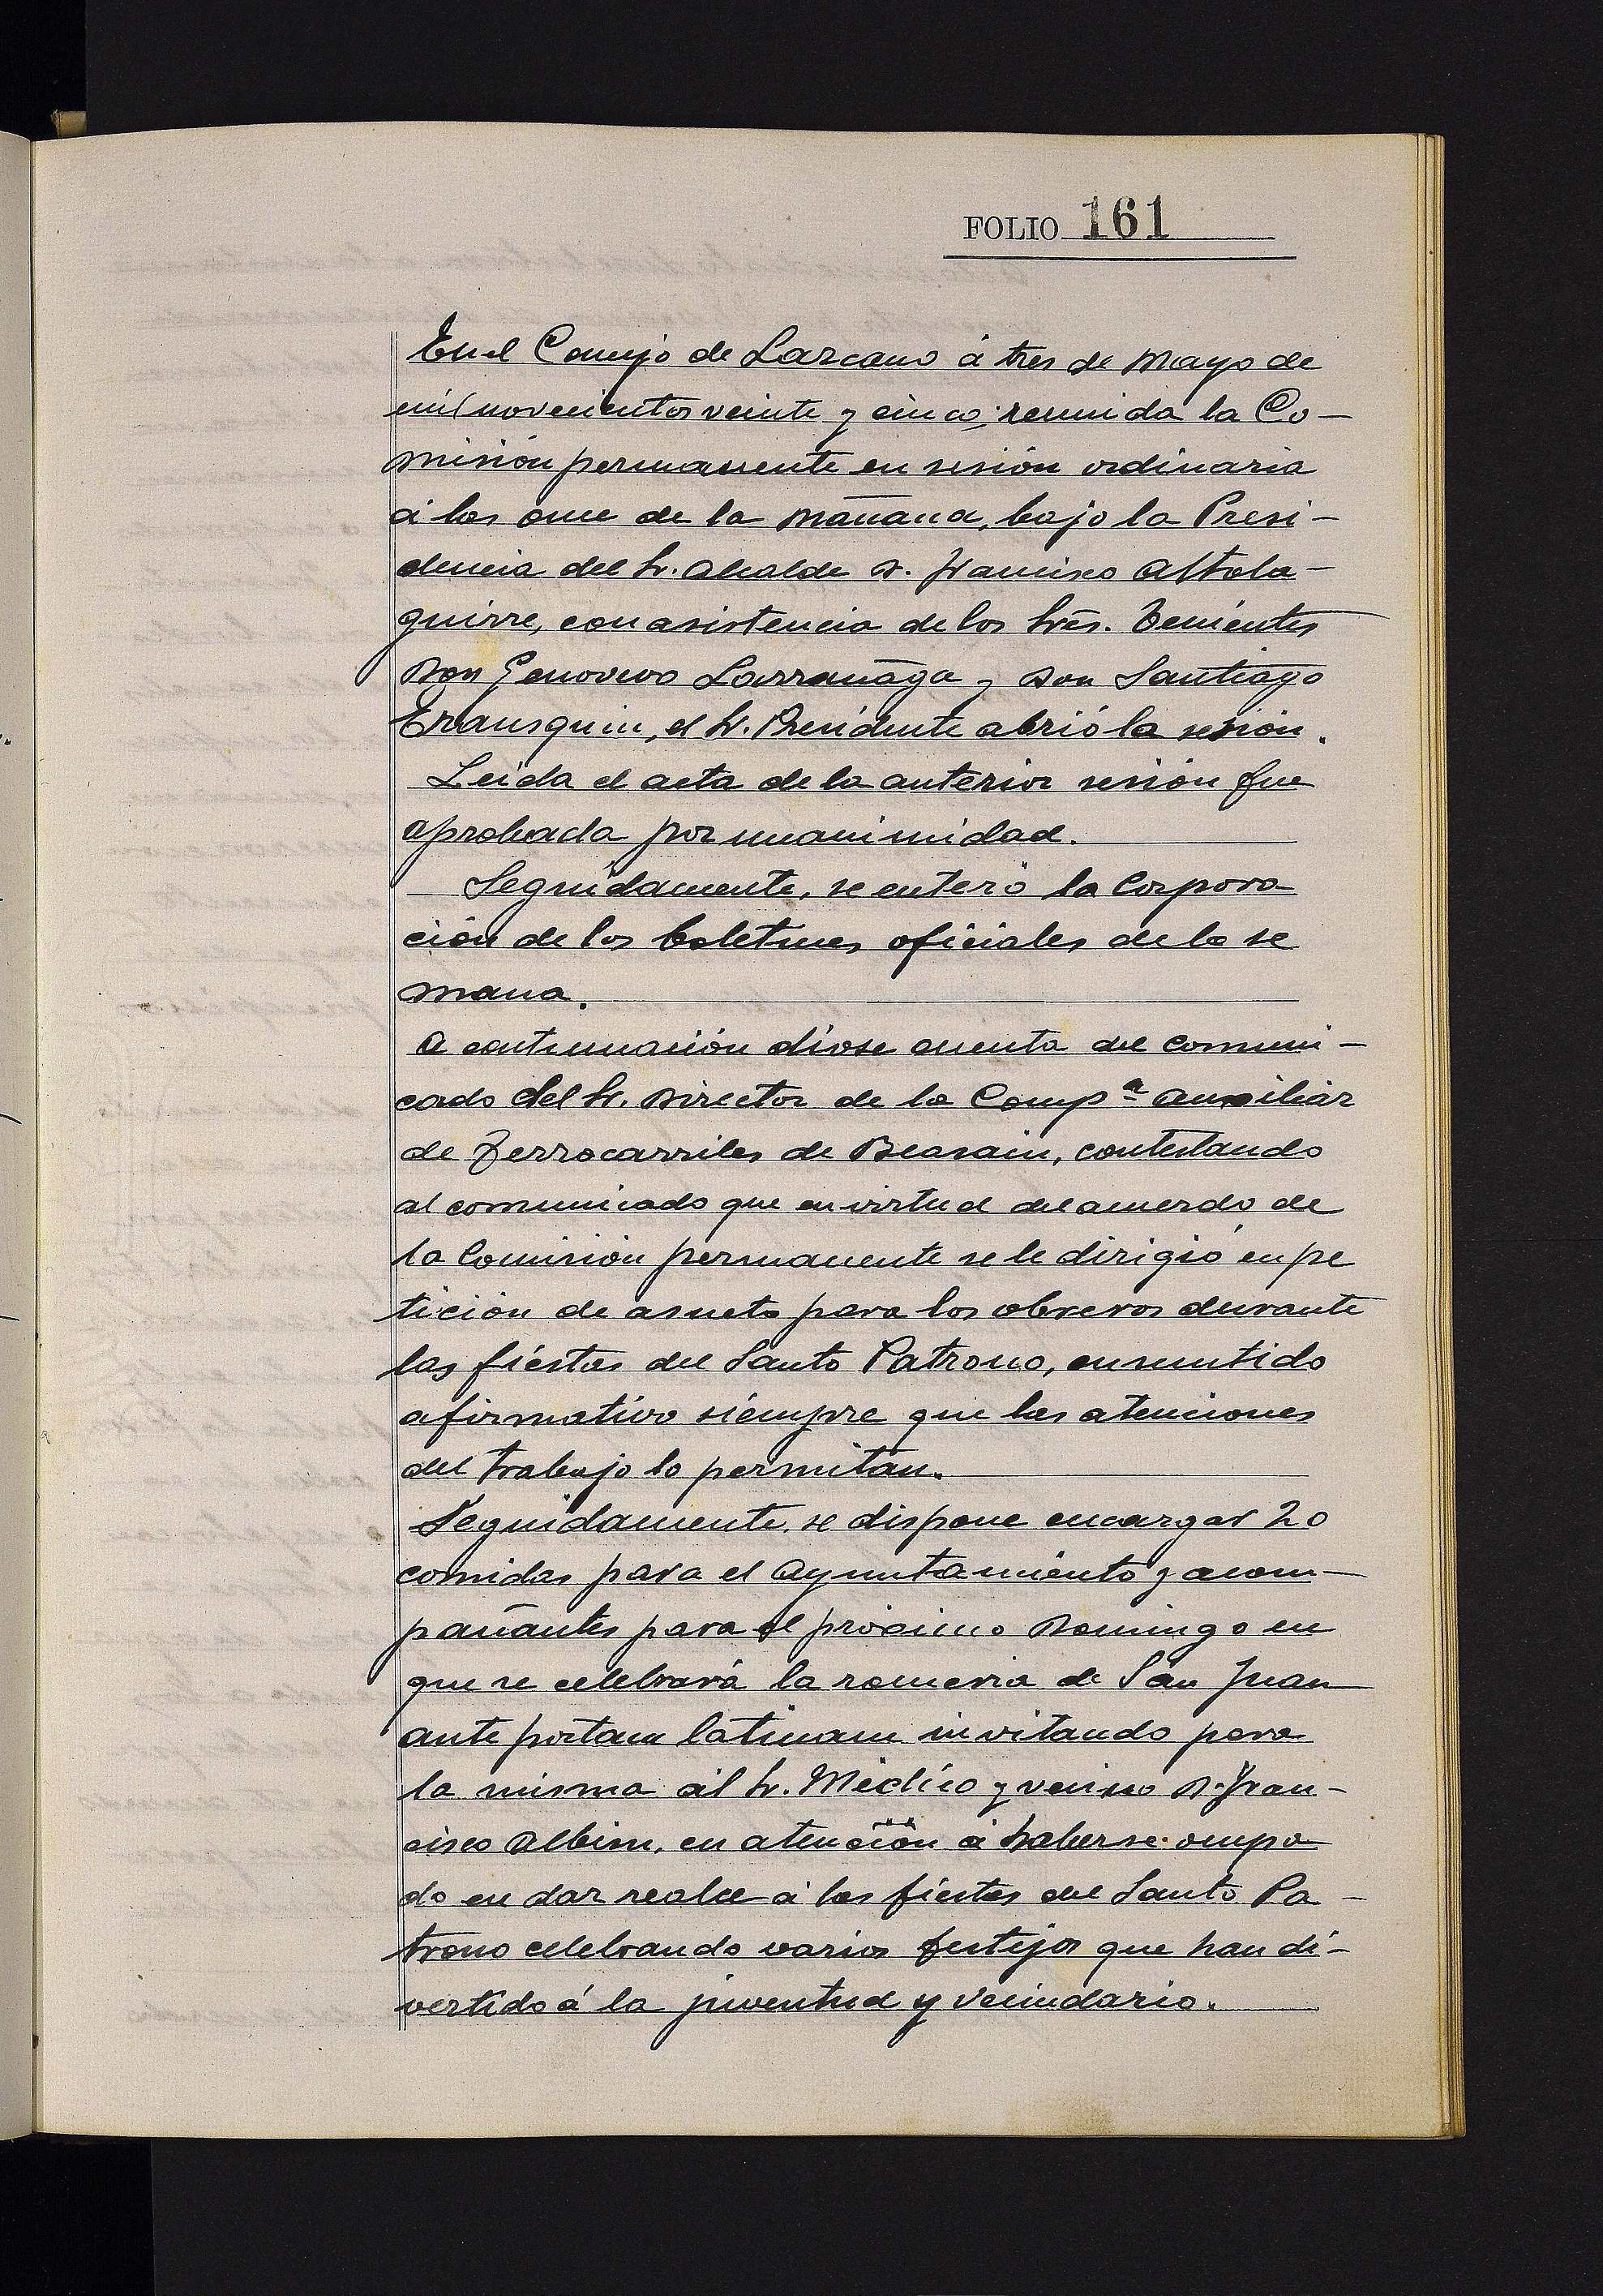 FOLIO 161
En el Concejo de Lazcano á tres de Mayo de
mil novecientos veinte y cinco, reunida la Co-
misión permanente en sesión ordinaria
á las once de la mañana, bajo la Presi-
dencia del Sr. Alcalde D. Francisco Altola-
guirre, con asistencia de los Sres. Tenientes
Don Genoveva Larrañaga y Don Santiago
Erausquin, el Sr. Presidente abrió la sesión.
Leida el acta de la anterior sesión fue
aprobada por unanimidad.
Seguidamente, se enteró la Corpora
ción de los boletines oficiales de la se
mana.
A continuación diose cuenta del comuni-
cado del Sr. Director de la Compª Auxiliar
de Ferrocarriles de Beasain, contestando
al comunicado que en virtud del acuerdo de
la Comisión permanente se le dirigió en pe
tición de asueto para los obreros durante
las fiestas del Santo Patrono, en sentido
afirmativo siempre que las atenciones
del trabajo lo permitan.
Seguidamente, se dispone encargar 20
comidas para el Ayuntamiento y acom-
pañantes para el próximo Domingo en
que se celebrará la romeria de San Juan
ante portam latinam invitando para
la misma al Sr. Médico y vecino D. Fran-
cisco Albisu, en atención á haberse ocupa
do en dar realce á las fiestas del Santo Pa-
trono celebrando varios festejos que han di-
vertido á la juventud y vecindario.